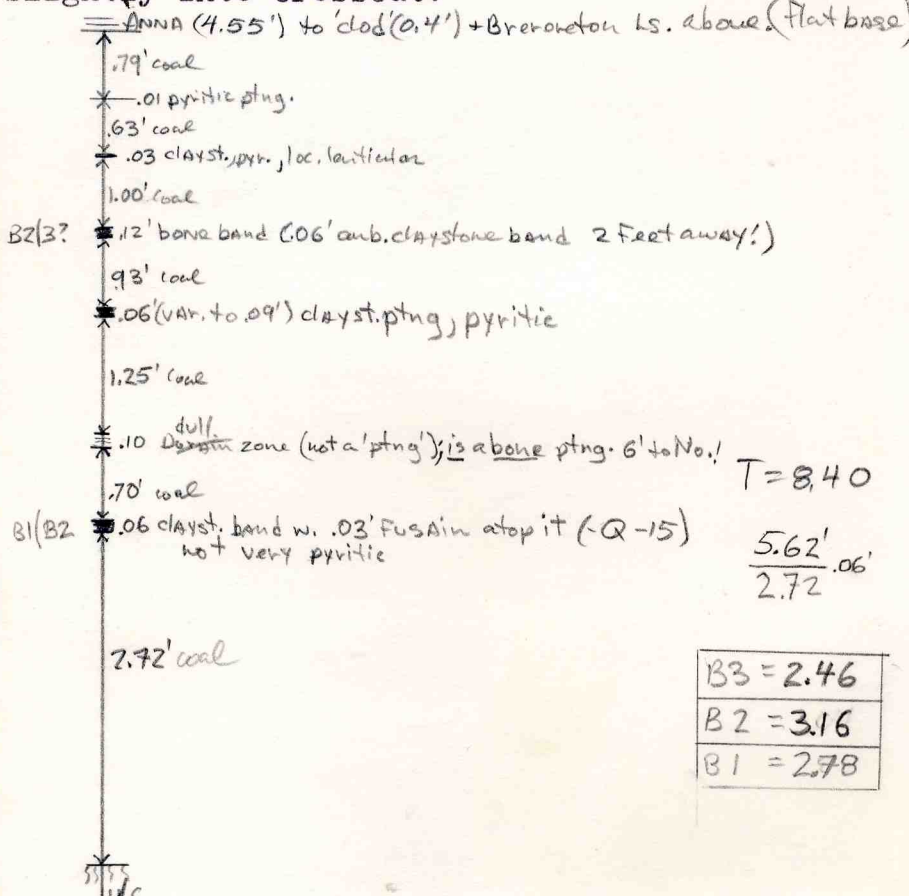 ANNA (4.55') to 'clod' (0.4') + Brereton Ls. above. (flat base)
.79' coal
.01 pyritic ptng.
.63' coal
.03 clayst., pyr., loc. lenticular
1.00' coal
B2/3? .12' bone band (.06' carb. claystone band 2 Feet away!)
.93' coal
.06' (var. to .09') clayst. ptng, pyritic
1.25' coal
dull
.10 zone (not a 'ptng'); is a bone ptng. 6' to No.!
.70' coal
B1/B2 .06 clayst. band w. .03' Fusain atop it (-Q-15)
not very pyritic
2.72' coal
T = 8.40
5.62'
.06'
2.72
B3 = 2.46
B2 = 3.16
B1 = 2.78